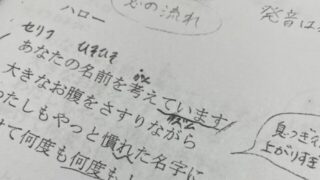 心の流れ
発音は
ハロー
セリフ
ひそひそ
あなたの名前を考えています
大きなお腹をさすりながら
たしもやっと慣れた名字に
けて何度も何度も
息つぎ
上がりすぎ